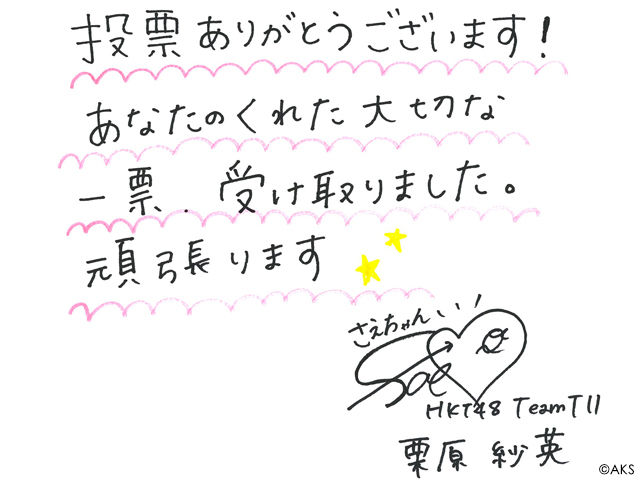 投票ありがとうございます!
あなたのくれた大切な
一票.受け取りました。
頑張ります
さえちゃんい!
Sae
HKT48 TeamTII
栗原 紗英
©AKS